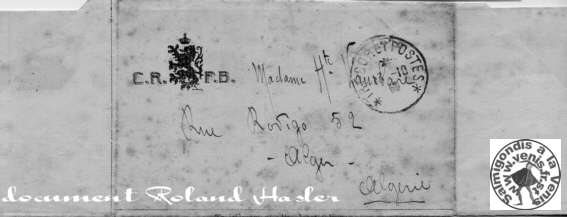 C.R. F.B.
Madame Hte
TRÉSOR ET POSTES
Rue Rovigo 52
- Alger -
Algérie
document Roland Hasler
Salmigondis a la Venis
www.venis.fr.st